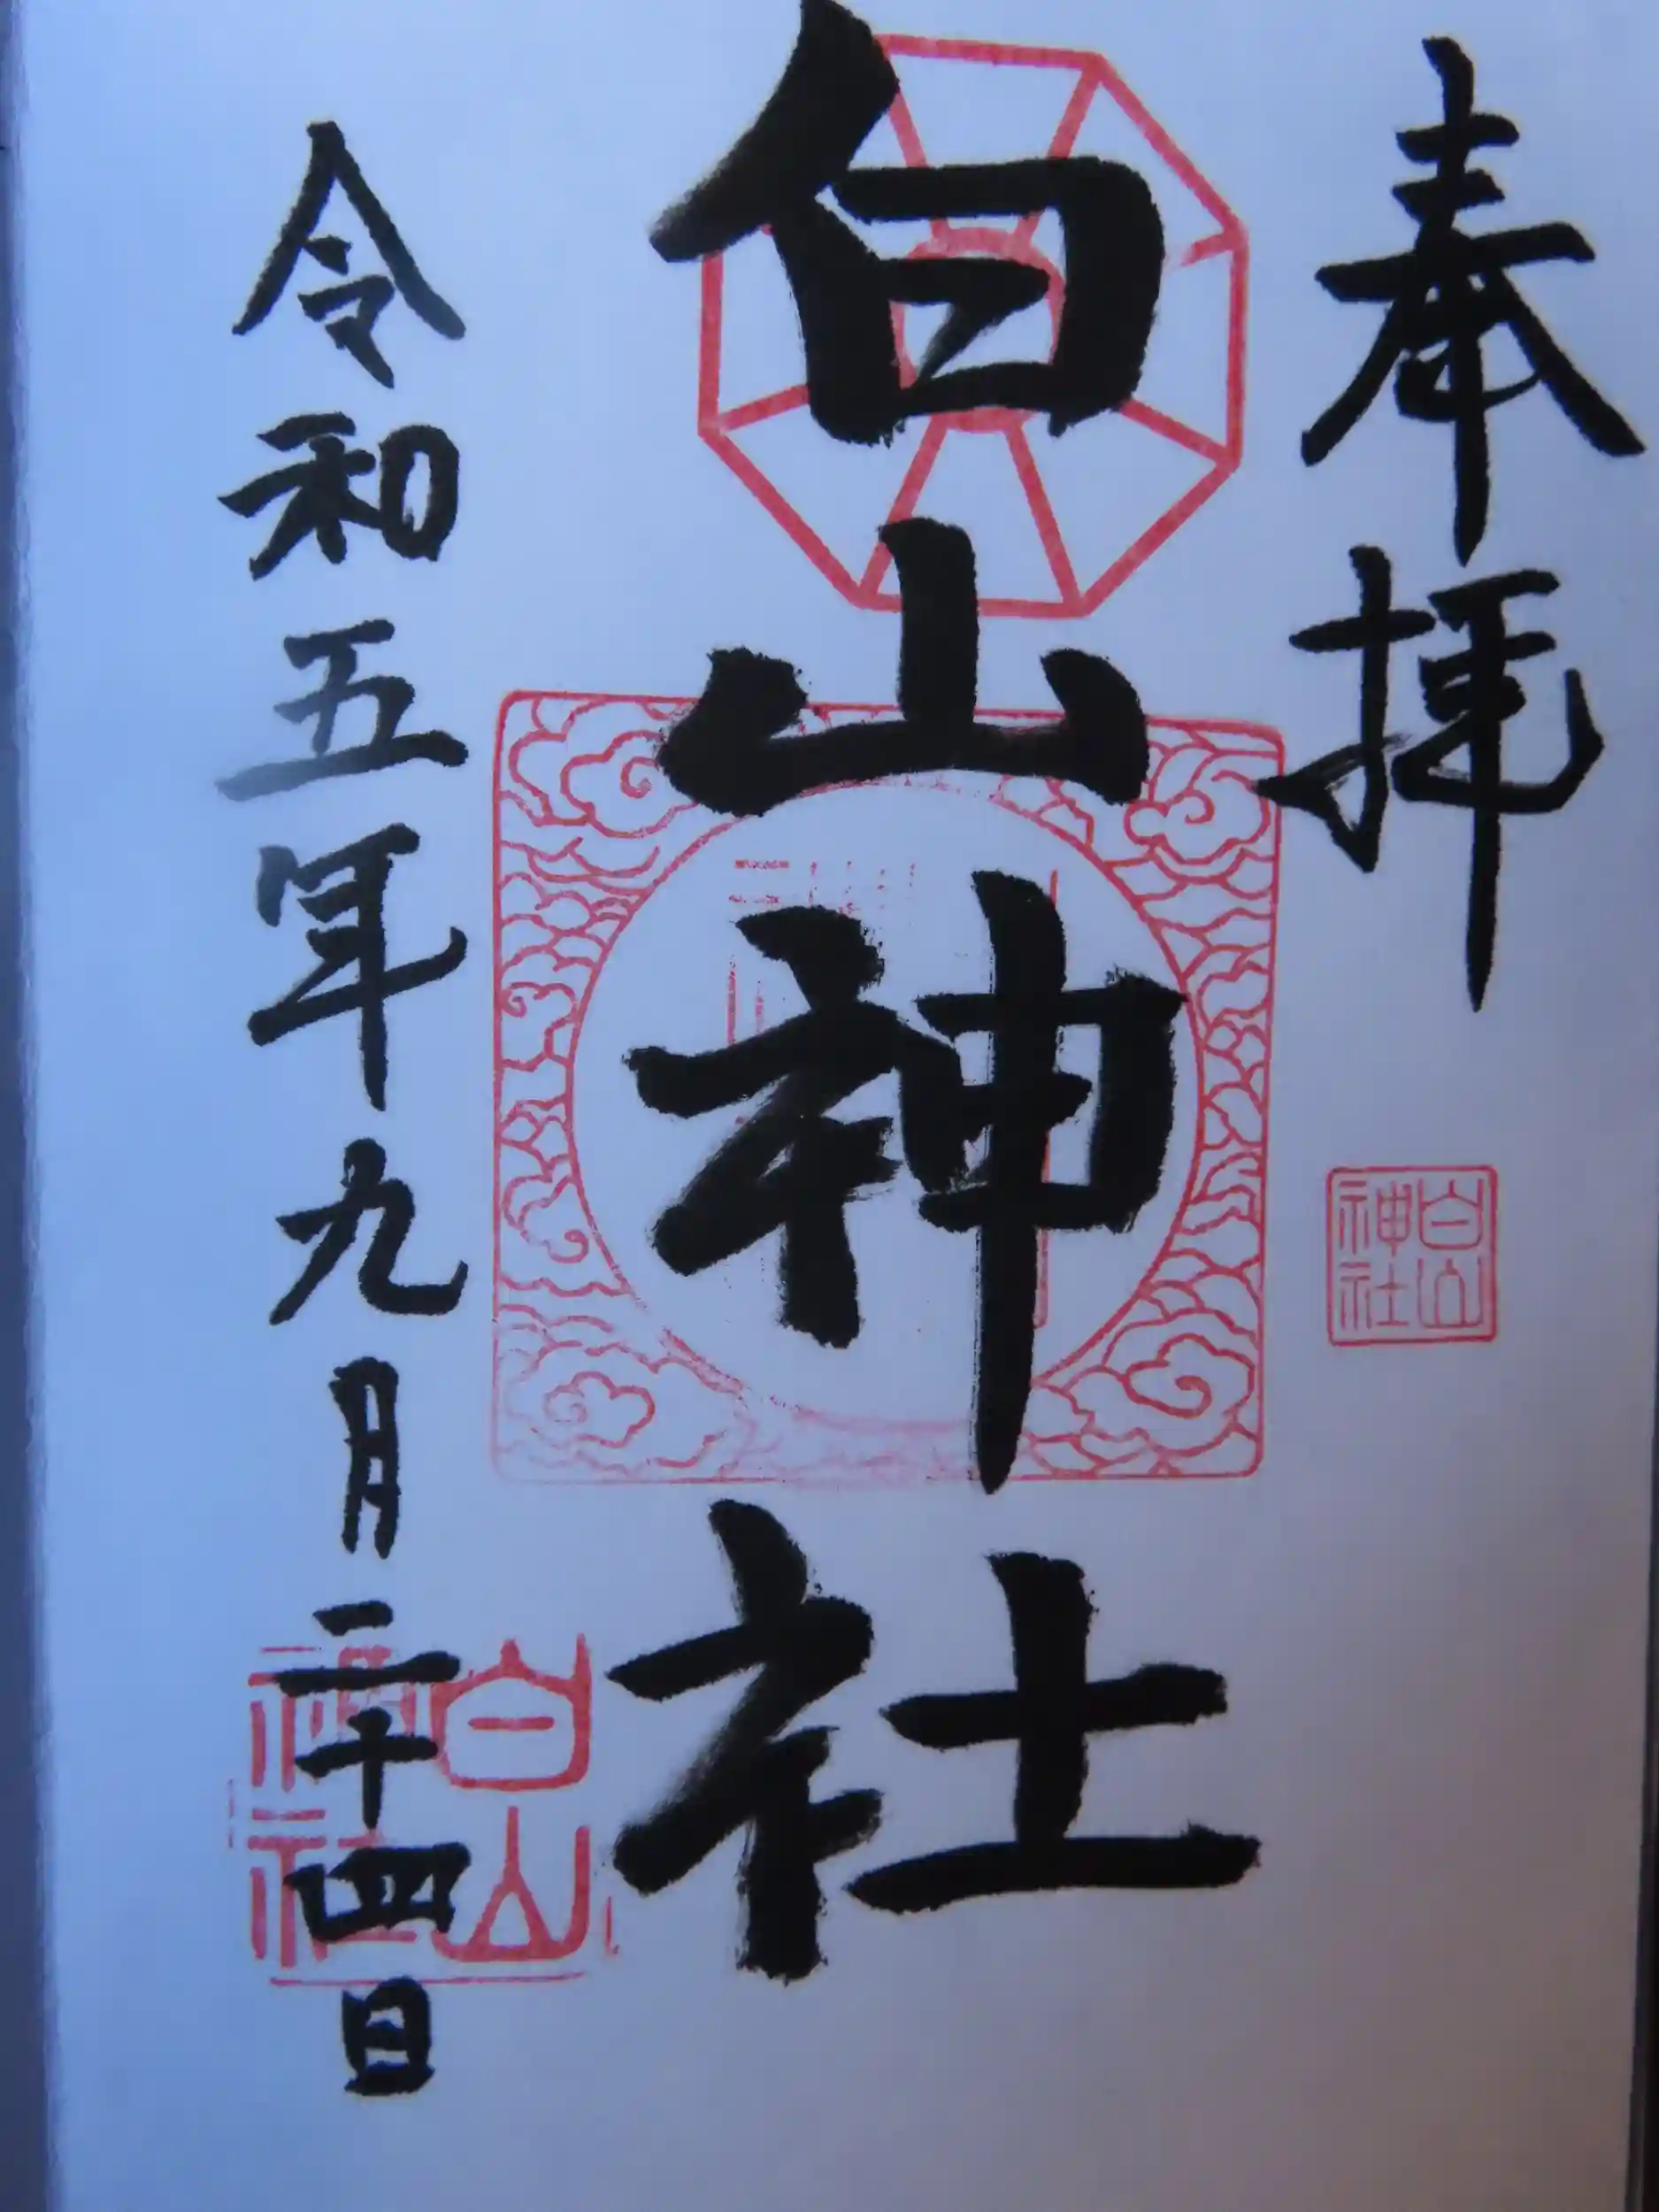 奉拝
白山
神社
白山神社
令和五年九月二十四日
白山
神社